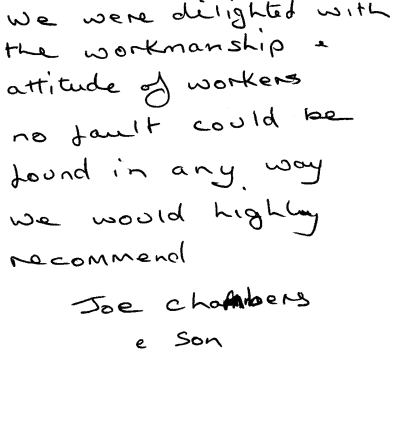 we were dilighted with
the workmanship e
attitude of workers
no fault could be
found in any way
we would highly
recommend
Joe chambers
e son